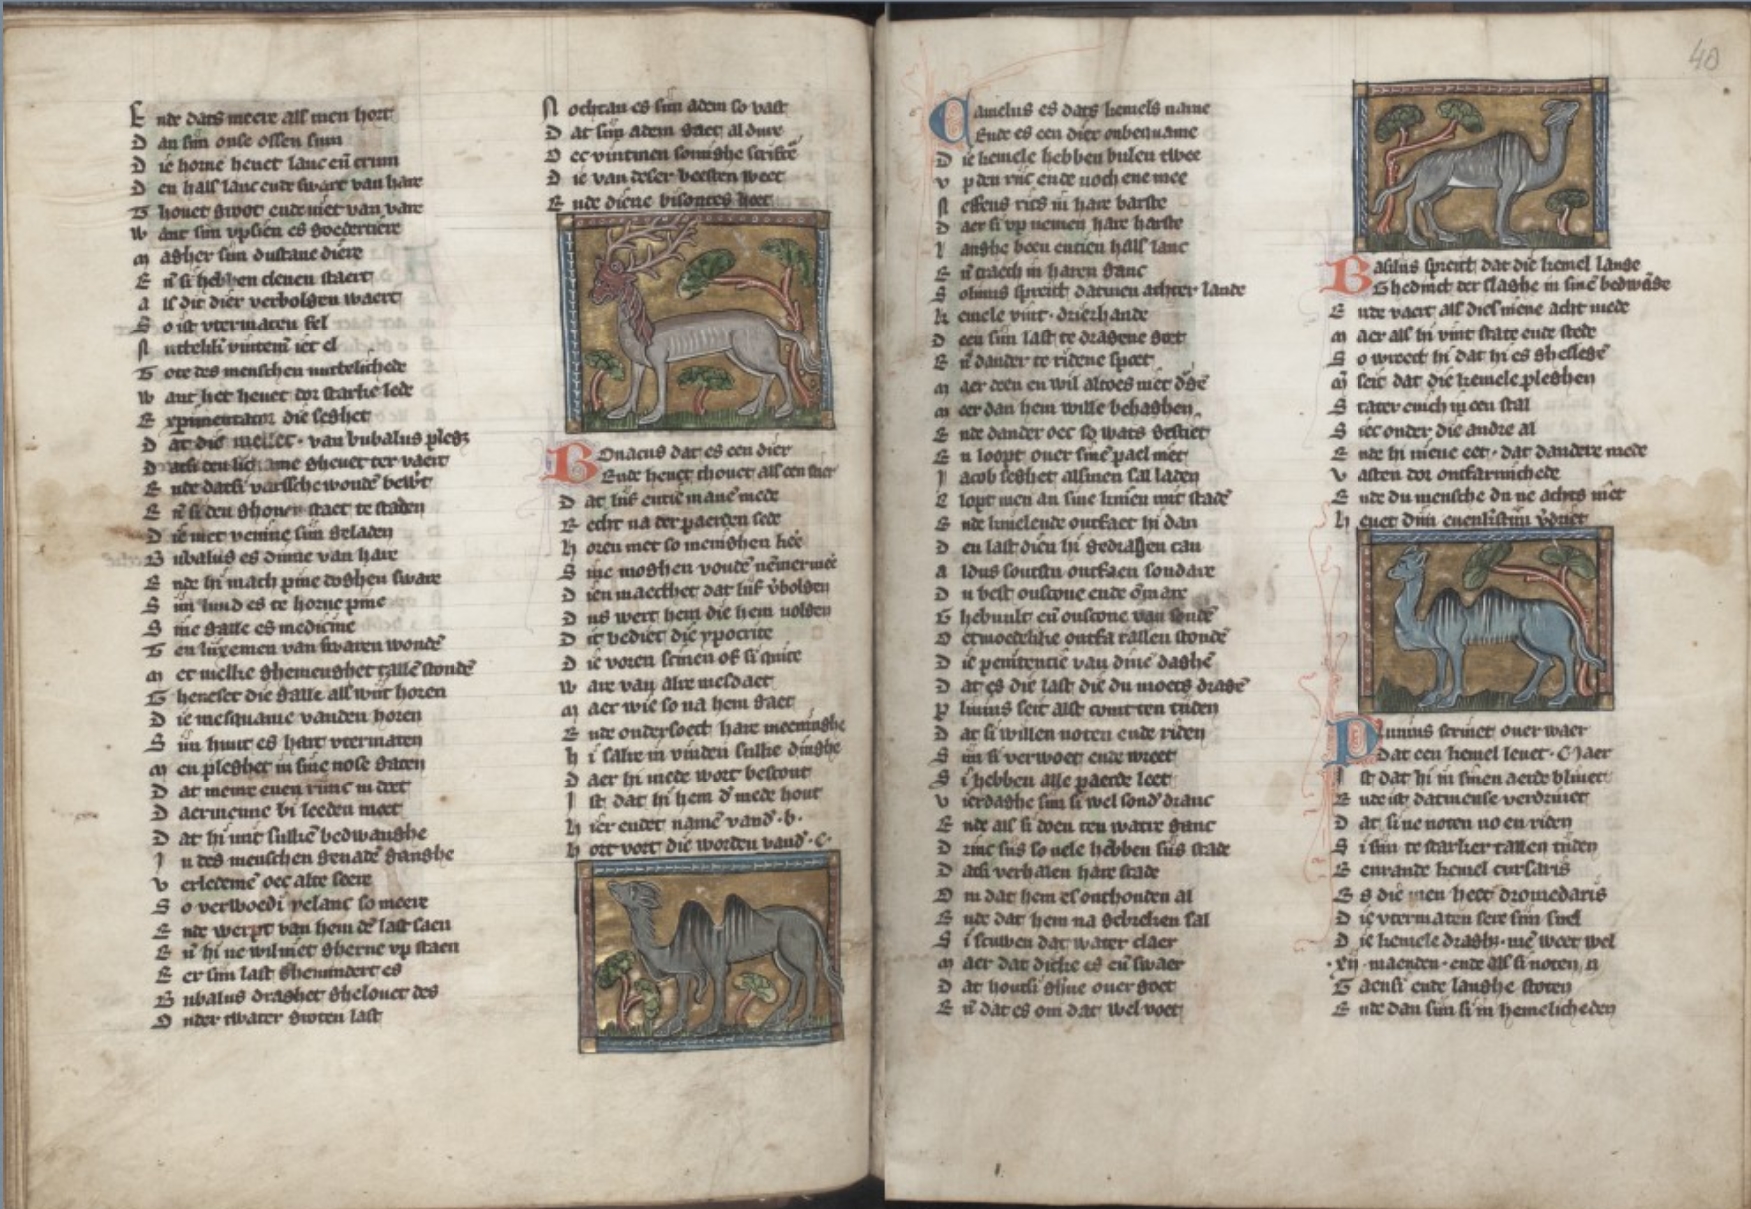 E nde dats meere als men hort
D an sijn onse ossen sijn
D ie horne hevet lanc en̄ crum
D en hals lanc ende swart van hare
T hovet groot ende niet van vare
W ant sijn upsien es goedertiere
M agher sijn dustane diere
E n̄ si hebben clenen staert
A ls dit dier verbolgen waert
S o ist utermaten fel
N uttelikē vintemt iet el
T ote des menschen nuttelichede
W ant het hevet dor starke lede
E xperimentator die seghet
D at die melket van bubalus pleget
E nde datsi varssche wondē
D ie met venine sijn geladen
B ubalus es dunne van hare
E nde hi mach pine doghen sware
S ijn es te horne pine
S ine galle es medicine
T en van swaren wondē
M et melke ghemenghet tallē stondē
T heneset die galle als wijt horen
D ie mesquame vanden horen
S ijn huut es hart utermaten
M en pleghet in sine nose gaten
D at mene enen rinc in doet
D aermenne bi leeden moet
D at hi mit sulkē bedwanghe
I n des menschen genadē ganghe
V erledemē oec alte seere
S o verwoedi so meere
E nde werpt van hem dē last saen
E n̄ hi ne wil niet gherne up staen
E er sijn last ghemindert es
B ubalus draghet ghelovet des
O nder twater groten last
N ochtan es sijn adem so vast
D at sijn adem gaet al dure
O ec vintmen somighe scrifte
D ie van deser beesten weet
E nde diene bisontes heet
B Onacus dat es een dier
Ende hevet thovet als een stier
D at lijf entie mane mede
R echt na der paerden sede
H oren met so menighen kere
S ine moghen
D ien maecthet dat lijf v̄bolgen
D us wert hem die hem volgen
D it bediet die ypocrite
D ie voren scinen of si quite
W are van alre mesdaet
M aer wie so na hem gaet
E nde ondersoect hare meeninghe
H i salre in vinden sulke dinghe
D aer hi mede wort bescout
I st dat hi hem d̄ mede hout
H ier endet namē vand̄ .b.
H ort vort die worden vand̄ .C.
C amelus es dats kemels name
Ende es een dier onbequame
D ie kemele hebben bulen twee
U p den ric ende noch ene mee
N effens rics in hare barste
D aer si up nemen hare harste
L anghe been entien hals lanc
E n̄ traech in haren ganc
S olinus spreict datmen achter lande
K emele vint drierhande
D een sijn last te dragene goet
E n̄ dander te ridene spoet
M aer deen en wil altoes niet
M eer dan hem wille behaghen
E nde dander oec so wats gesciet
E n loopt over sinē pael niet
I acob seghet alsmen sal laden
C lopt men an sine knien mit staden
E nde knielende ontfaet hi dan
D en last dien hi gedraghen can
A ldus soutstu ontfaen sondare
D u best onscone ende ōmare
G hebuult en̄ onscone van sondē
O etmoedelike ontfa tallen stondē
D ie penitencie van dinē daghē
D at es die last die du moets dragē
P linius seit alst comt ten tiden
D at si willen noten ende riden
S ijn si verwoet ende wreet
S i hebben alle paerde leet
V ierdaghe sijn si wel sond̄ dranc
E nde als si doen ten watre ganc
D rinc sijs so vele hebben sijs stade
D atsi verhalen hare scade
O m dat hem es onthouden al
E nde dat hem na gebreken sal
S i scuwen dat water claer
M aer dat dicke es en̄ swaer
D at houtsi over goet
E n̄ dat es om dat wel voet
40
B asilius spreict dat die kemel lange
Ghedinct der slaghe in sinē bedwāge
E nde vaert als diēs niene acht mede
M aer als hi vint state ende stede
S o wreect hi dat hi es gheslegē
M̄ seit dat die kemele pleghen
S tater enich in een stal
S iec onder die andre al
E nde hi niene eet dat dandere mede
V asten dor ontfarmichede
E nde du mensche du ne achts niet
H evet dijn evenkistijn v̄driet
P Linius scrivet over waer
dat een kemel levet .C. jaer
I st dat hi in sinen aerde blivet
E nde ist datmense verdrivet
D at si ne noten no en riden
S i sijn te starker tallen tiden
E enrande kemel cursaris
E s die men heet dromedaris
D ie utermaten sere sijn snel
D ie kemele draghē mē weet wel
.xij. maenden ende als si noten
T aensi ende langhe stoten
E nde dan sijn si in hemelicheden